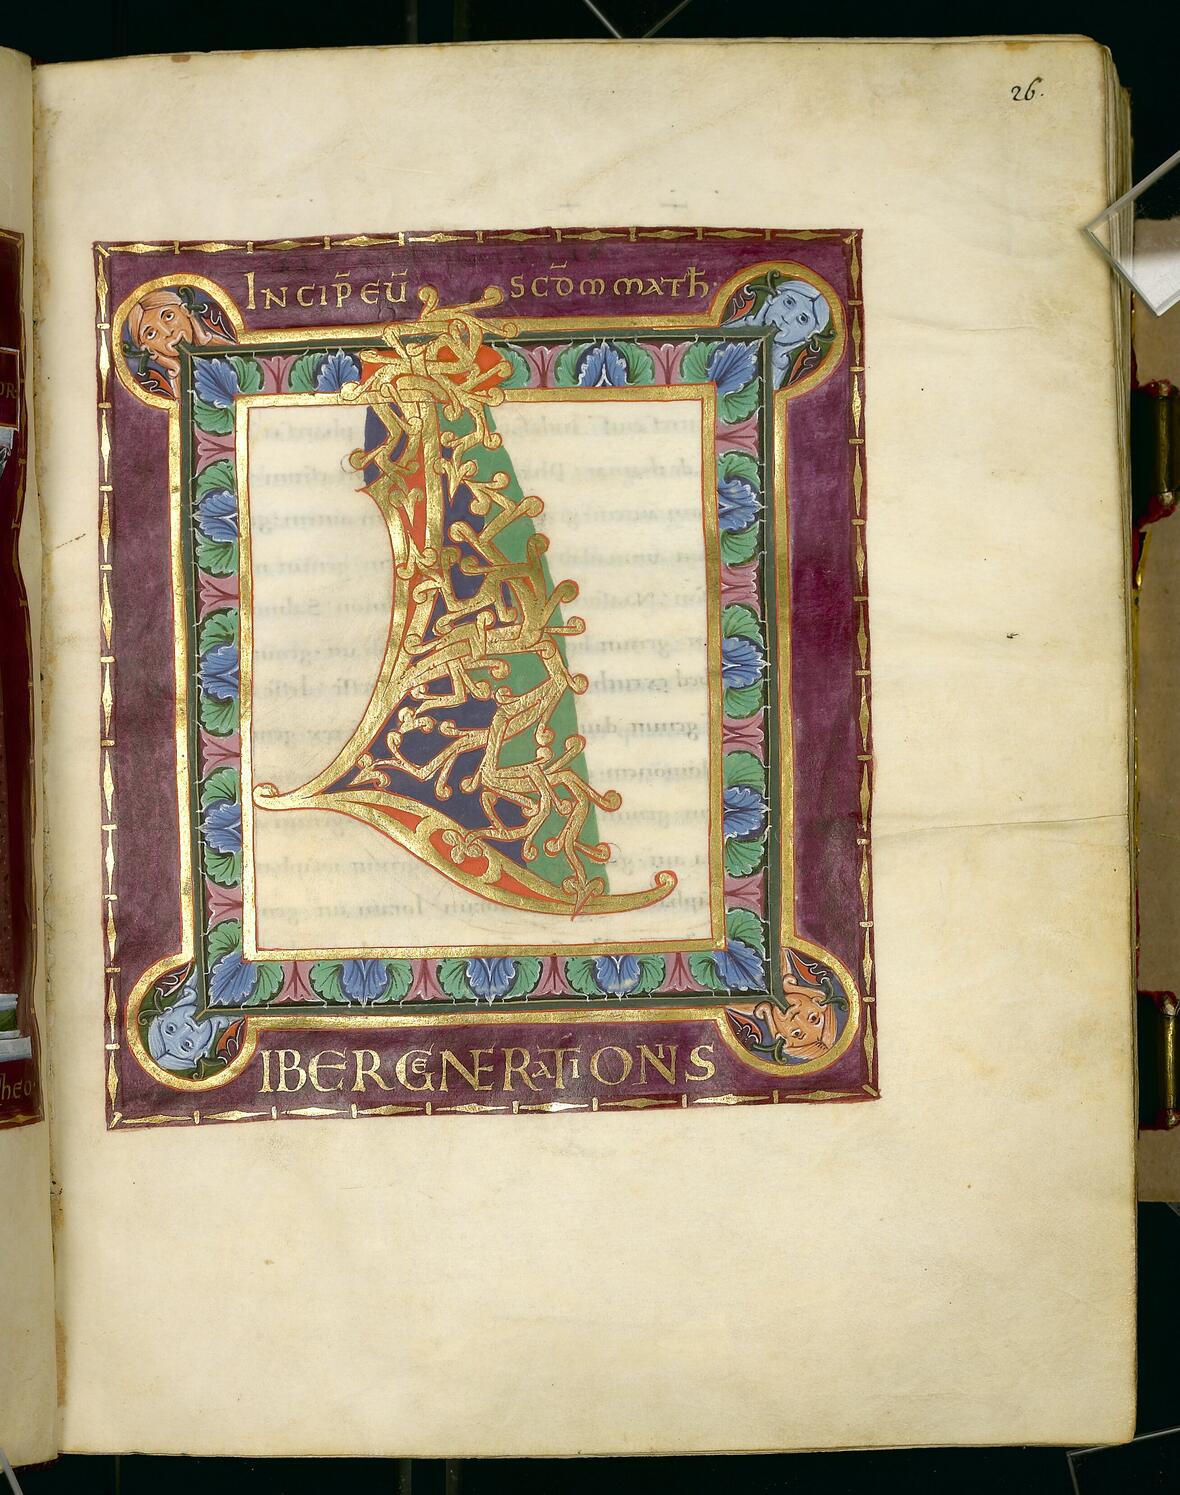 26.
INCIP̄ EŪ SCD̄M MATH̄·
L
IBER GENERATIONIS